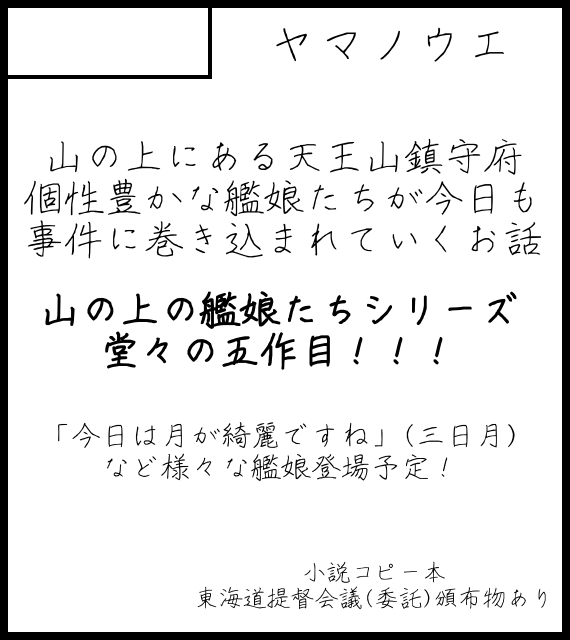 ヤマノウエ
山の上にある天王山鎮守府
個性豊かな艦娘たちが今日も
事件に巻き込まれていくお話
山の上の艦娘たちシリーズ
堂々の五作目！！！
「今日は月が綺麗ですね」(三日月)
など様々な艦娘登場予定！
小説コピー本
東海道提督会議(委託)頒布物あり